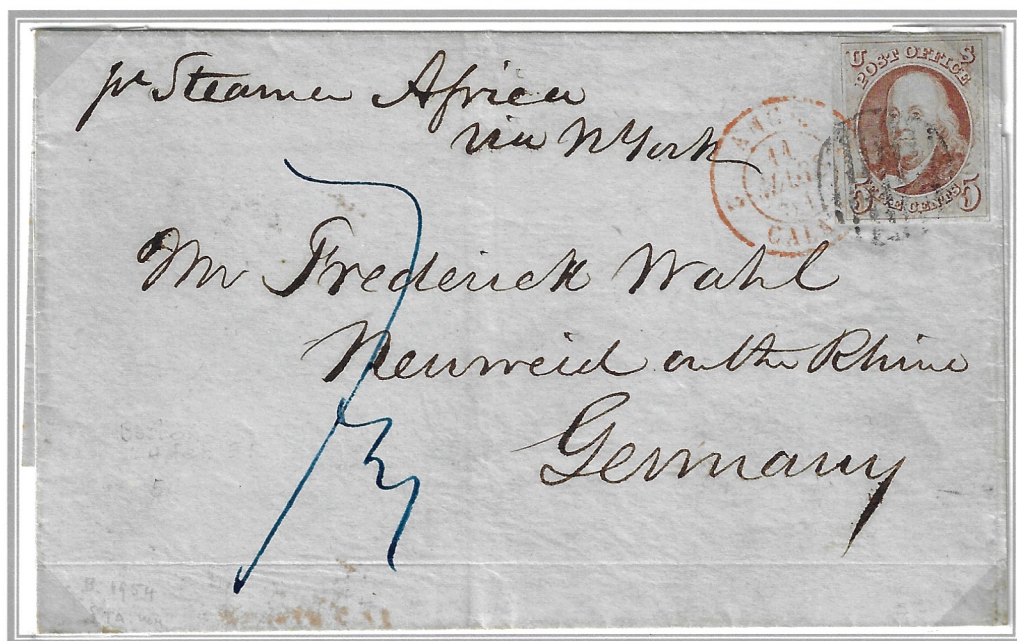 pr Steamer Africa
via N York
U S
POST OFFICE
5 FIVE CENTS 5
ANGL.
14
MARS
51
CALAIS
Mr Frederick Wahl
Neuweid on the Rhine
Germany
Boston
B. 1954